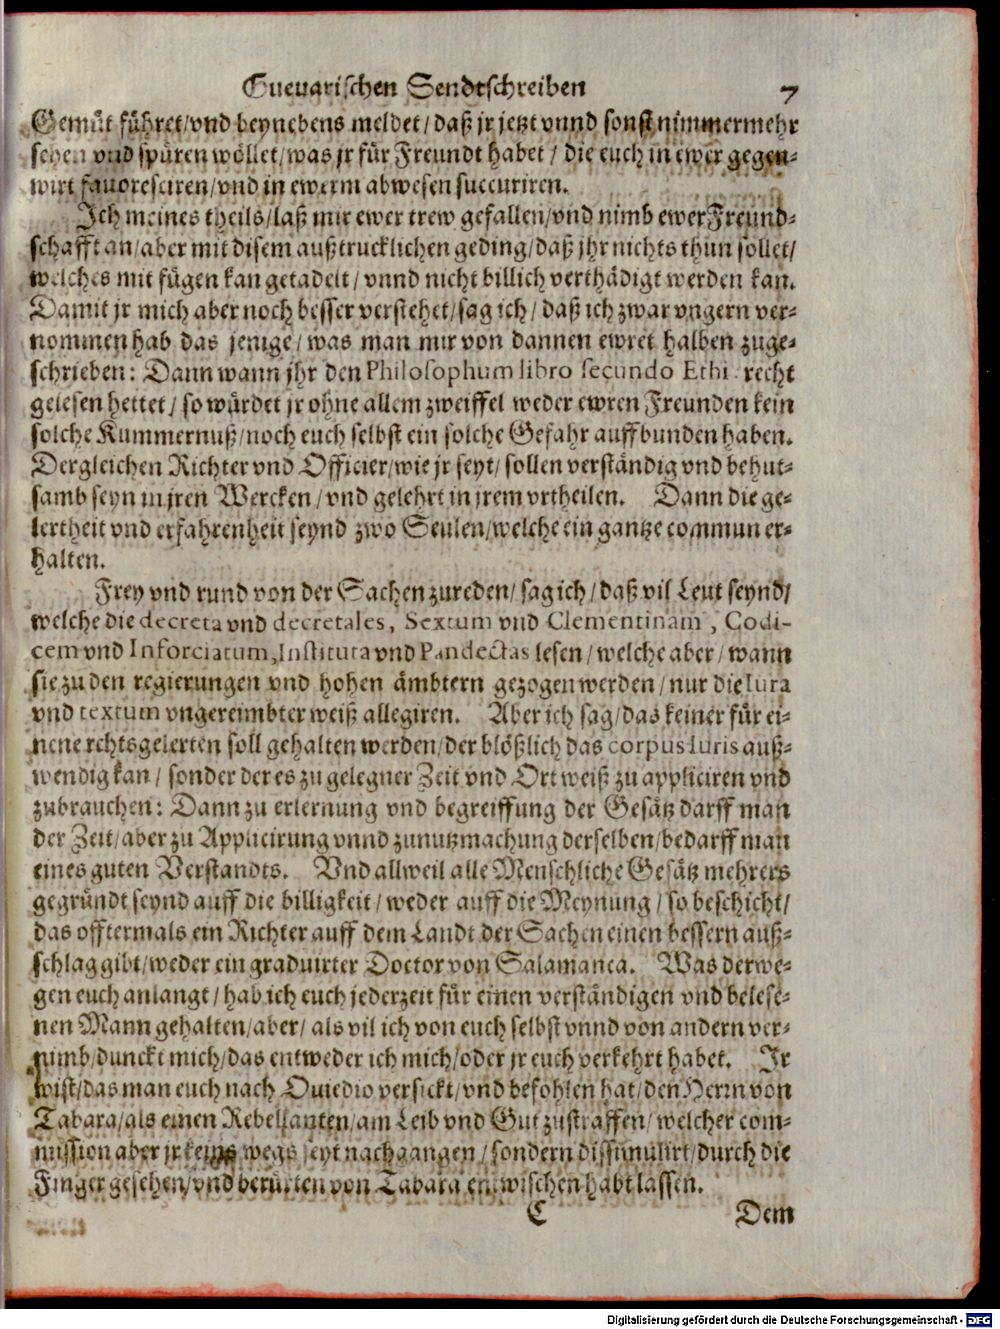 Guevarischen Sendtschreiben 7
Gemüt führet/vnd beynebens meldet/daß jr jetzt vnnd sonst nimmermehr
sehen vnd spüren wöllet/was jr für Freundt habet/ die euch in ewer gegen-
wirt favoresciren/vnd in ewerm abwesen succuriren.
Ich meines theils/laß mir ewer trew gefallen/vnd nimb ewer Freund-
schafft an/aber mit disem außtrucklichen geding/daß jhr nichts thun sollet/
welches mit fügen kan getadelt/ vnnd nicht billich verthädigt werden kan.
Damit jr mich aber noch besser verstehet/sag ich/ daß ich zwar vngern ver-
nommen hab das jenige/ was man mir von dannen ewret halben zuge-
schrieben: Dann wann jhr den Philosophum libro secundo Ethi. recht
gelesen hettet/ so würdet jr ohne allem zweiffel weder ewren Freunden kein
solche Kummernuß/noch euch selbst ein solche Gefahr auffbunden haben.
Dergleichen Richter vnd Officier/wie jr seyt/ sollen verständig vnd behut-
samb seyn in jren Wercken/ vnd gelehrt in jrem vrtheilen. Dann die ge-
lertheit vnd erfahrenheit seynd zwo Seulen/welche ein gantze commun er-
halten.
Frey vnd rund von der Sachen zureden/ sag ich/ daß vil Leut seynd/
welche die decreta vnd decretales, Sextum vnd Clementinam, Codi-
cem vnd Inforciatum, Instituta vnd Pandectas lesen/ welche aber/ wann
sie zu den regierungen vnd hohen ämbtern gezogen werden/ nur die Iura
vnd textum vngereimbter weiß allegiren. Aber ich sag/das keiner für ei-
nen rechtsgelerten soll gehalten werden/der blößlich das corpus Iuris auß-
wendig kan/ sonder der es zu gelegner Zeit vnd Ort weiß zu appliciren vnd
zubrauchen: Dann zu erlernung vnd begreiffung der Gesätz darff man
der Zeit/aber zu Applicirung vnnd zunutzmachung derselben/bedarff man
eines guten Verstandts. Vnd allweil alle Menschliche Gesätz mehrers
gegründt seynd auff die billigkeit/ weder auff die Meynung/ so beschicht/
das offtermals ein Richter auff dem Landt der Sachen einen bessern auß-
schlag gibt/weder ein graduirter Doctor von Salamanca. Was derwe-
gen euch anlangt/ hab ich euch jederzeit für einen verständigen vnd belese-
nen Mann gehalten/aber/ als vil ich von euch selbst vnnd von andern ver-
nimb/dunckt mich/das entweder ich mich/oder jr euch verkehrt habet. Ir
wist/das man euch nach Ouiedio versickt/vnd befohlen hat/den Herrn von
Tabara/als einen Rebellanten/am Leib vnd Gut zustraffen/ welcher com-
mission aber jr keins wegs seyt nachgangen/ sondern dissimulirt/durch die
Finger gesehen/vnd berürten von Tabara entwischen habt lassen.
C Dem
Digitalisierung gefördert durch die Deutsche Forschungsgemeinschaft - DFG